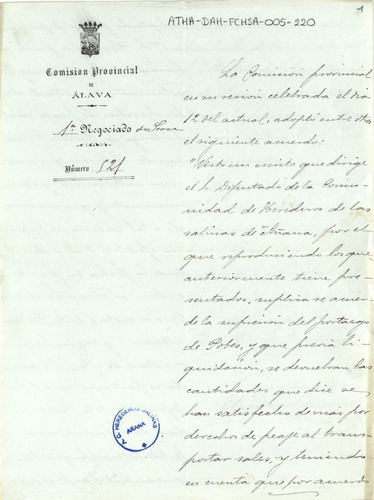 ATHA-DAH-FCHSA-005-220
1
Comision Provincial
DE
ÁLAVA
1er Negociado
Número 521
La Comisión provincial
en su sesión celebrada el dia
12 del actual, adoptó entre otros
el siguiente acuerdo:
"Visto un escrito que dirige
el Sr. Diputado de la Comu-
nidad de Herederos de las
salinas de Añana, por el
que reproduciendo los que
anteriormente tiene pre-
sentados, suplica se acuer-
de la supresion del portazgo
de Pobes, y que previa li-
quidación, se devuelvan las
cantidades que dice se
han satisfecho demás por
derechos de peaje al trans-
portar sales, y teniendo
en cuenta que por acuerdo
HEREDEROS SALINAS
AÑANA